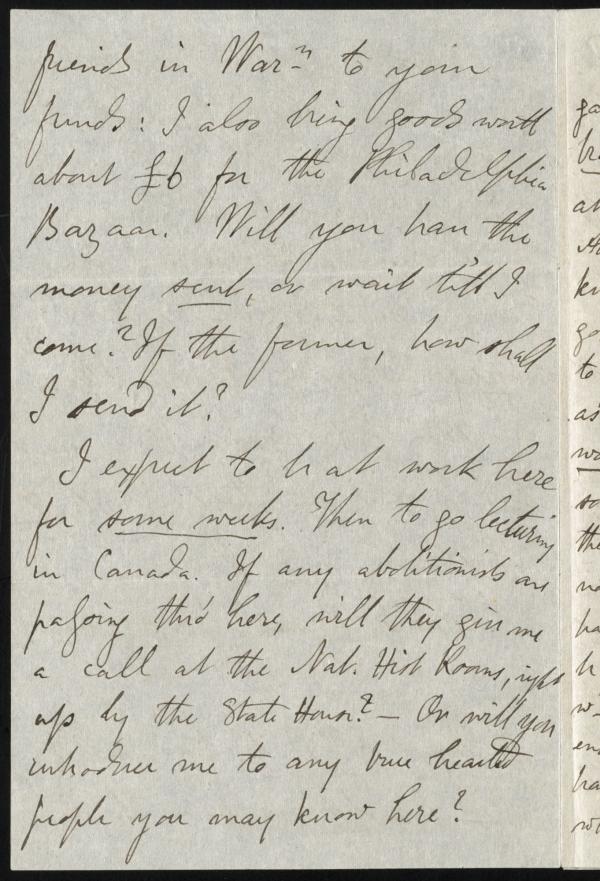 friends in Warⁿ to your
funds: I also bring goods worth
about £6 for the Philadelphia
Bazaar. Will you have the
money sent, or wait till I
come? If the former, how shall
I send it?
I expect to be at work here
for some weeks. Then to go lecturing
in Canada. If any abolitionists are
passing thro' here, will they give me
a call at the Nat. Hist Rooms, right
up by the State House? — Or will you
introduce me to any true hearted
people you may know here?